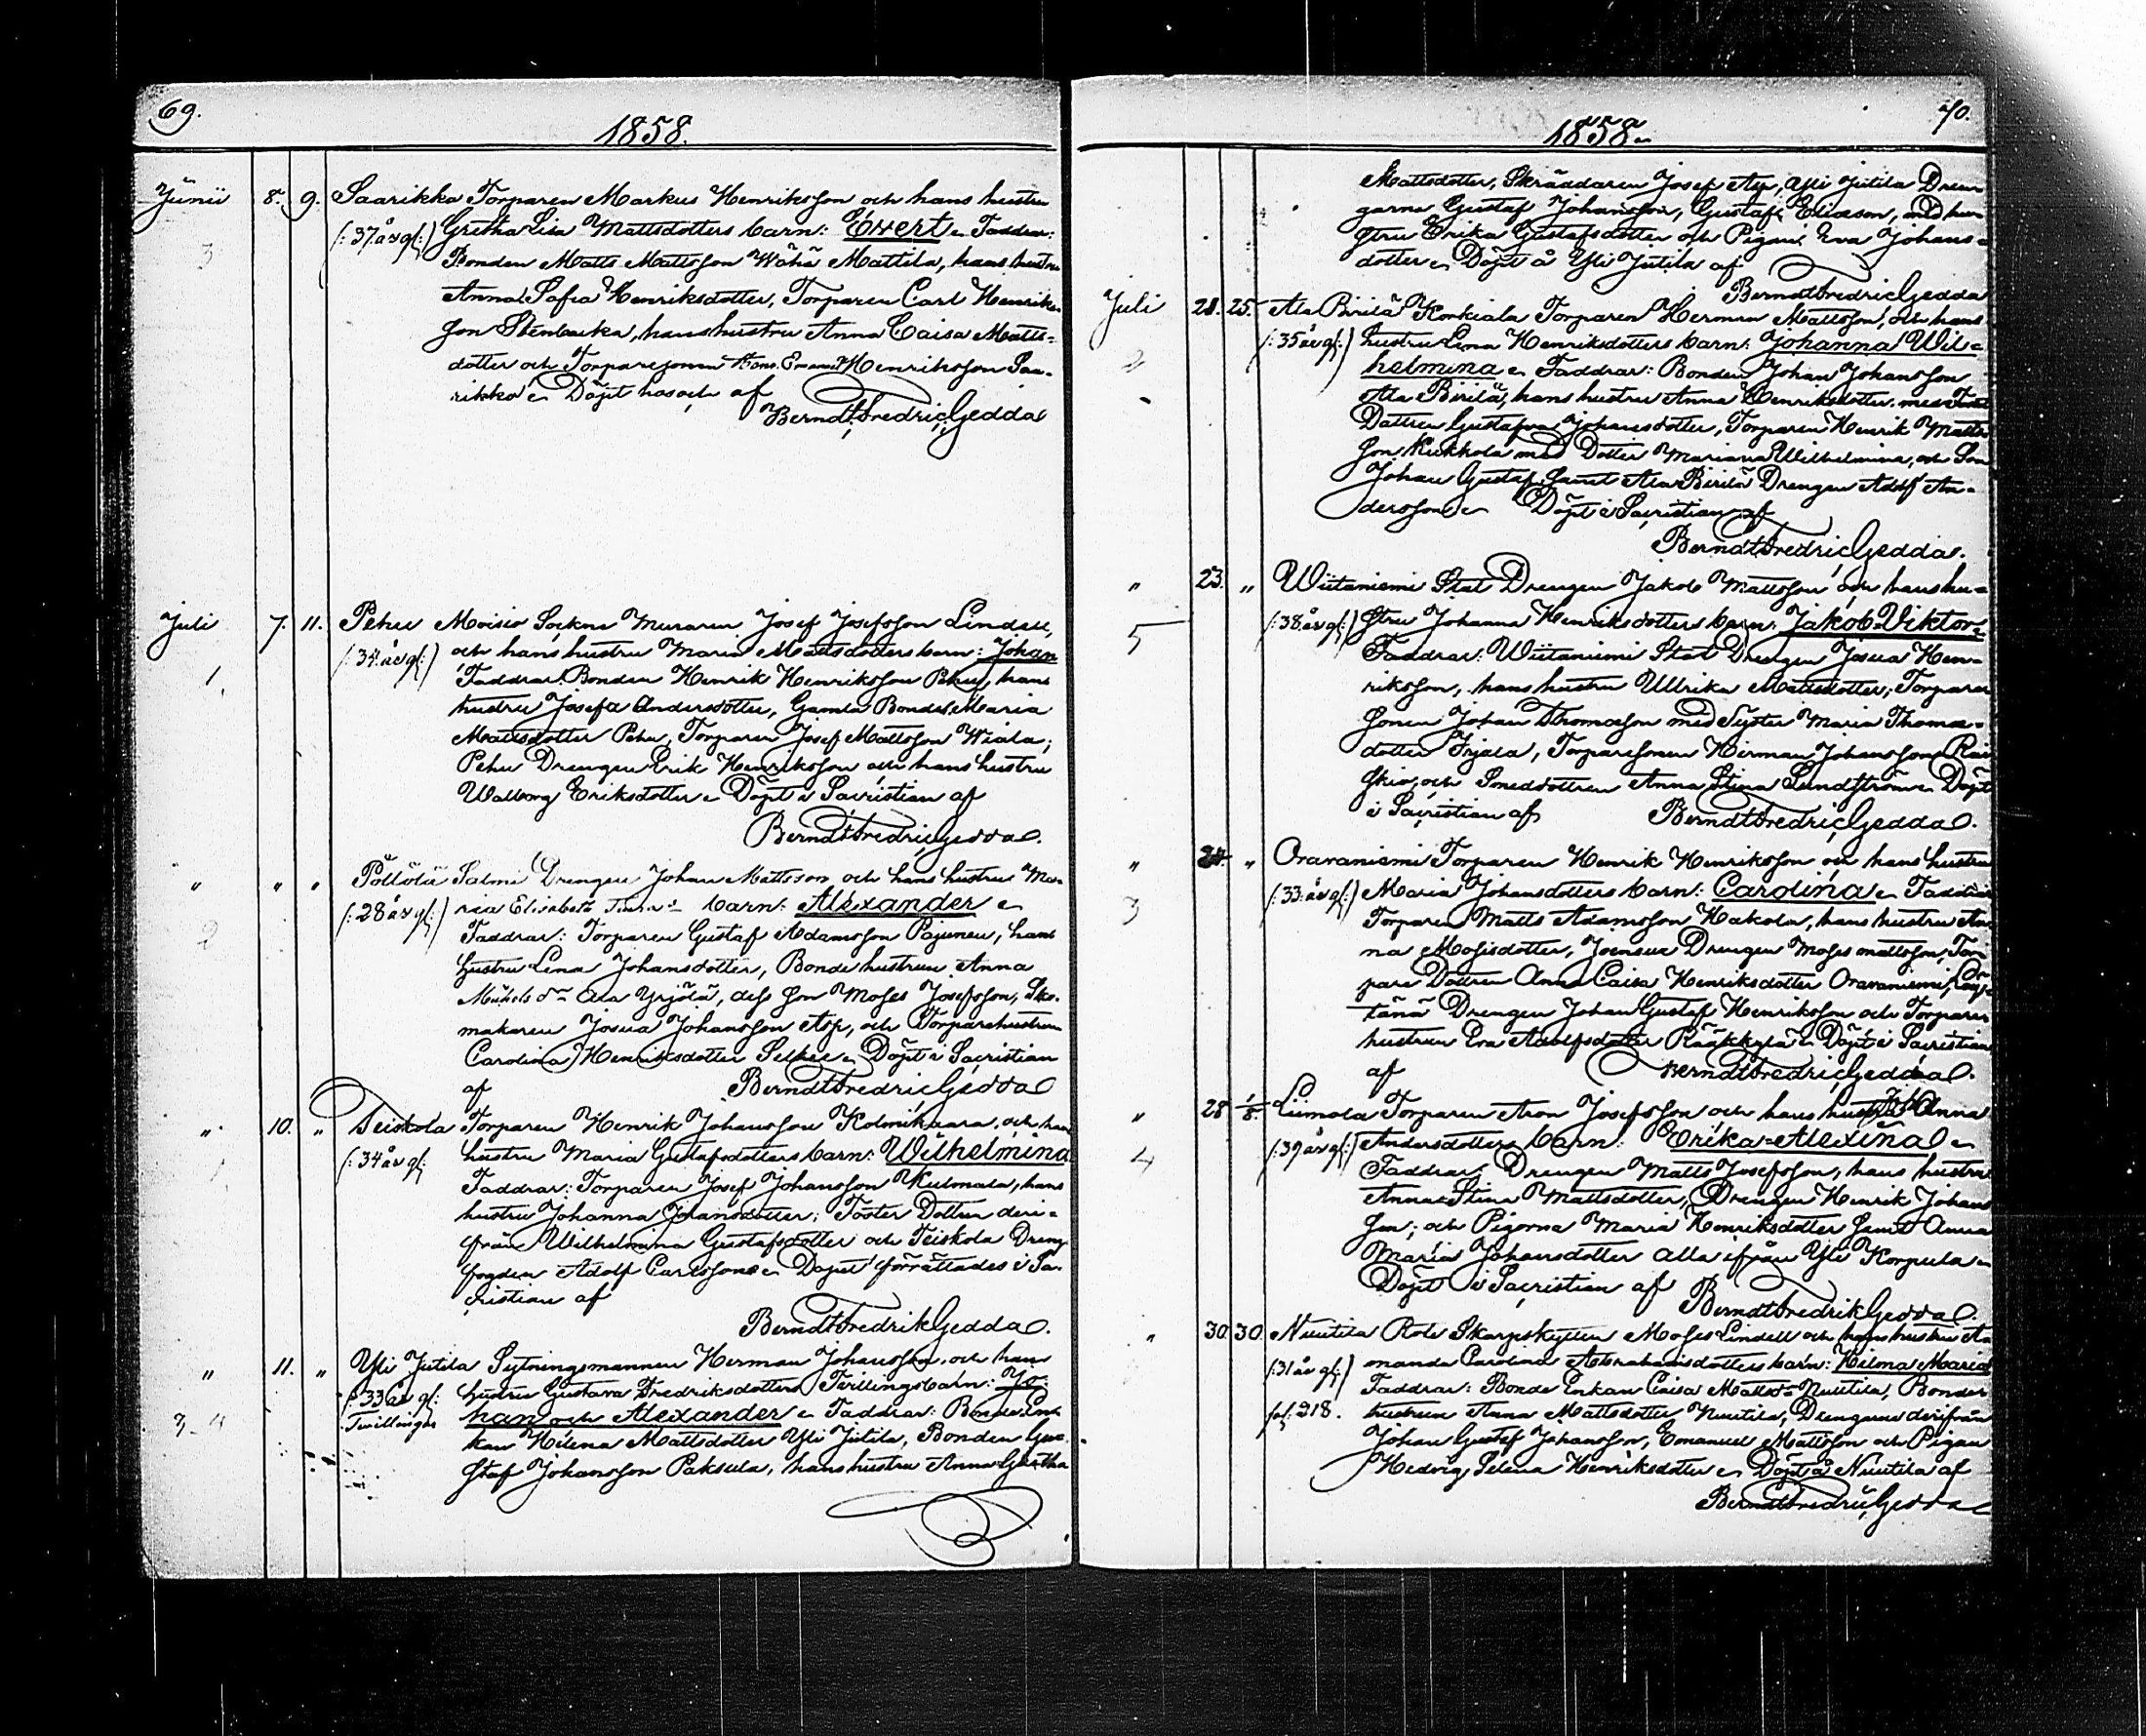 69.
1858.
Junii 8. 9. Saarikka Torparen Markus Henriksson och hans hustru
3 (: 37 år gl :) Gretha Lisa Mattsdotters barn: Evert. Faddrar:
Bonden Matts Mattsson Wähä Mattila, hans hustru
Anna Safia Henriksdotter, Torparen Carl Henriks-
son Stenbacka, hans hustru Anna Caisa Matts-
dotter och Torparesonen Emanuel Henriksson Saa-
rikko. Döpt af
Berndt Fredric Gedda
Juli 7. 11. Pehu Moisio Sockne Muraren Josef Josefsson Lindell,
1. (: 34 år gl :) och hans hustru Maria Mattsdotters barn: Johan
Faddrar: Bonden Henrik Henriksson Pehu, hans
hustru Josefa Andersdotter, Gamla Bondes Maria
Mattsdotter Pehu, Torparen Josef Mattsson Wiala;
Pehu Drengen Erik Henriksson och hans hustru
Walborg Eriksdotter. Döpt i Sacristian af
Berndt Fredric Gedda.
" " " Salmi Drengen Johan Mattsson och hans hustru Ma-
2 (: 28 år gl :) ria Elisabeth barn: Alexander
Faddrar: Torparen Gustaf Adamsson Pajunen, hans
hustru Lena Johansdotter, Bonde hustrun Anna
Michels dr Ala Yrjölä, dess son Moses Josefsson, Sko-
makaren Josua Johansson Asp, och Torparehustrun
Carolina Henriksdotter Selkee. Döpt i Sacristian
af Berndt Fredric Gedda
" 10. " Teiskola Torparen Henrik Johansson Kolmikaara, och hans
(: 34 år gl: hustru Maria Gustafsdotters barn: Wilhelmina
Faddrar: Torparen Josef Johansson Kulmala, hans
hustru Johanna Johansdotter; Foster Dottren deri-
från Wilhelmina Gustafsdotter och Teiskola Dreng
fogden Adolf Carlsson. Dopet förrättades i Sa-
cristian af
Berndt Fredrik Gedda.
" 11. " Yli Jutila Sytningsmannen Herman Johansson och hans
(: 33 år gl: hustru Gustava Fredriksdotters Tvillingsbarn: Jo-
3-4 Twillingar han och Alexander. Faddrar: Bonde En-
kan Helena Mattsdotter Yli Jutila, Bonden Gu-
staf Johansson Paksula, hans hustru Anna Gretha
70.
1858.
Mattsdotter, Skräddaren Josef Asp, Yli Jutila Dren-
garne Gustaf Johansson, Gustaf Eliasson, med hu-
stru Erika Gustafsdotter och Pigan Eva Johans-
dotter. Döpt å Yli Jutila af
Berndt Fredric Gedda
Juli 21. 25. Ala Pirilä Korkiala Torparen Herman Mattsson, och hans
2 (: 35 år gl :) hustru Lena Henriksdotters barn: Johanna Wil-
helmina. Faddrar: Bonden Johan Johansson
Ala Pirilä, hans hustru Anna Henriksdotter med
Dottren Gustafva Johansdotter, Torparen Henrik Matts-
son Kukkola med Dotter Mariana Wilhelmina, och Son
Johan Gustaf, samt Ala Pirilä Drengen Adolf An-
dersson. Döpt i Sacristian af
Berndt Fredric Gedda.
" 23. " Wiitaniemi Stat Drengen Jakob Mattsson och hans hu-
5 (: 38 år gl :) stru Johanna Henriksdotters barn: Jakob Viktor.
Faddrar: Wiitaniemi Stat Drengen Josua Hen-
riksson, hans hustru Ullrika Mattsdotter; Torpare
sonen Johan Thomasson med Syster Maria Thomas-
dotter Irjala, Torparesonen Herman Johansson Rai
skio, och Smedsdottren Anna Stina Sundström. Döpt
i Sacristian af Berndt Fredric Gedda.
" 24. " Oravaniemi Torparen Henrik Henriksson och hans hustru
3 (: 33 år gl :) Maria Johansdotters barn: Carolina. Faddrar:
Torparen Matts Adamsson Hakola, hans hustru An-
na Mosisdotter, Joensuu Drengen Moses Mattsson, Tor-
pare Dottren Anna Caisa Henriksdotter Oravaniemi,
tänä Drengen Johan Gustaf Henriksson och Torpare
hustrun Eva Adolfsdotter Rääkkylä. Döpt i Sacristian
af Berndt Fredric Gedda.
" 28 1/8. Liimola Torparen Aron Josefsson och hans hustru Anna
4 (: 39 år gl :) Andersdotters barn: Erika Alexina
Faddrar: Drengen Matts Josefsson, hans hustru
Anna Stina Mattsdotter, Drengen Henrik Johans
son; och Pigorna Maria Henriksdotter samt Anna
Maria Johansdotter alla ifrån Yli Korpula.
Döpt i Sacristian af
Berndt Fredrik Gedda.
" 30. 30. Nuutila Rote Skarpskytten Moses Lindell och hans hustru A-
(: 31 år gl :) manda Carolina Abrahamsdotters barn: Hilma Maria
Faddrar: Bonde Enkan Caisa Mattsdr Nuutila, Bonde-
fol: 218. hustrun Anna Mattsdotter Nuutila, Drengarne derifrån
Johan Gustaf Johansson, Emanuel Mattsson och Pigan
Hedvig Selena Henriksdotter. Döpt å Nuutila af
Berndt Fredric Gedda